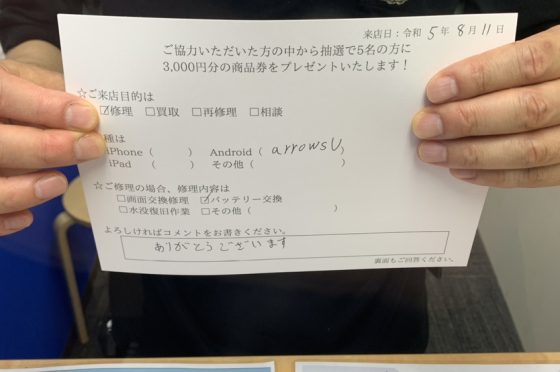 来店日：令和 5年 8月 11日
ご協力いただいた方の中から抽選で5名の方に
3,000円分の商品券をプレゼントいたします！
☆ご来店目的は
☑修理 □買取 □再修理 □相談
種は
iPhone（ ） Android（ arrowsU）
iPad （ ） その他（ ）
☆ご修理の場合、修理内容は
□画面交換修理 ☑バッテリー交換
□水没復旧作業 □その他（ ）
よろしければコメントをお書きください。
ありがとうございます
裏面もご回答ください。